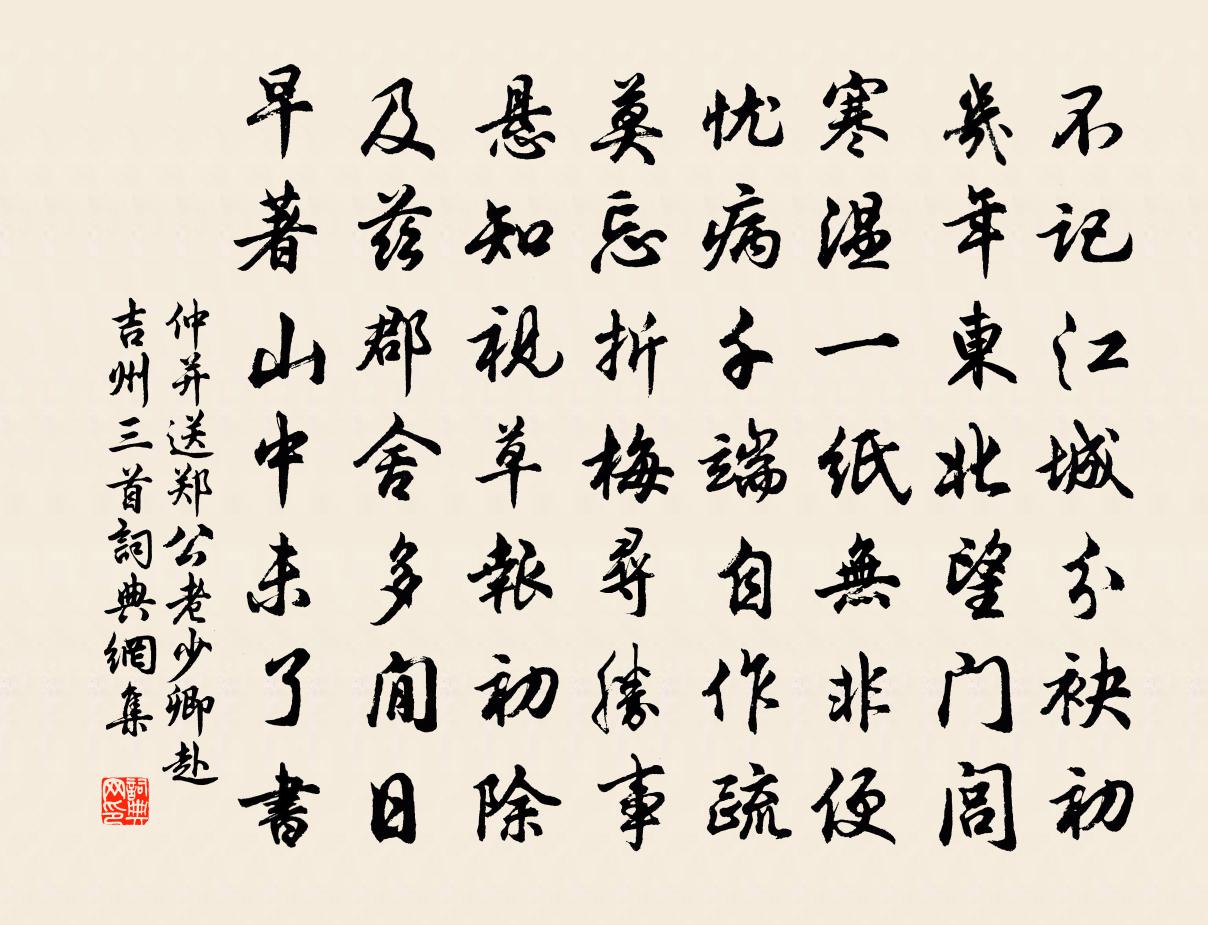 不记江城分袂初
幾年東北望门闾
寒温一纸無非便
忧病千端自作疏
莫忘折梅尋勝事
悬知视草報初除
及兹郡舍多閒日
早著山中未了書
仲并送郑公老少卿赴
吉州三首詞典網集
詞典
网印